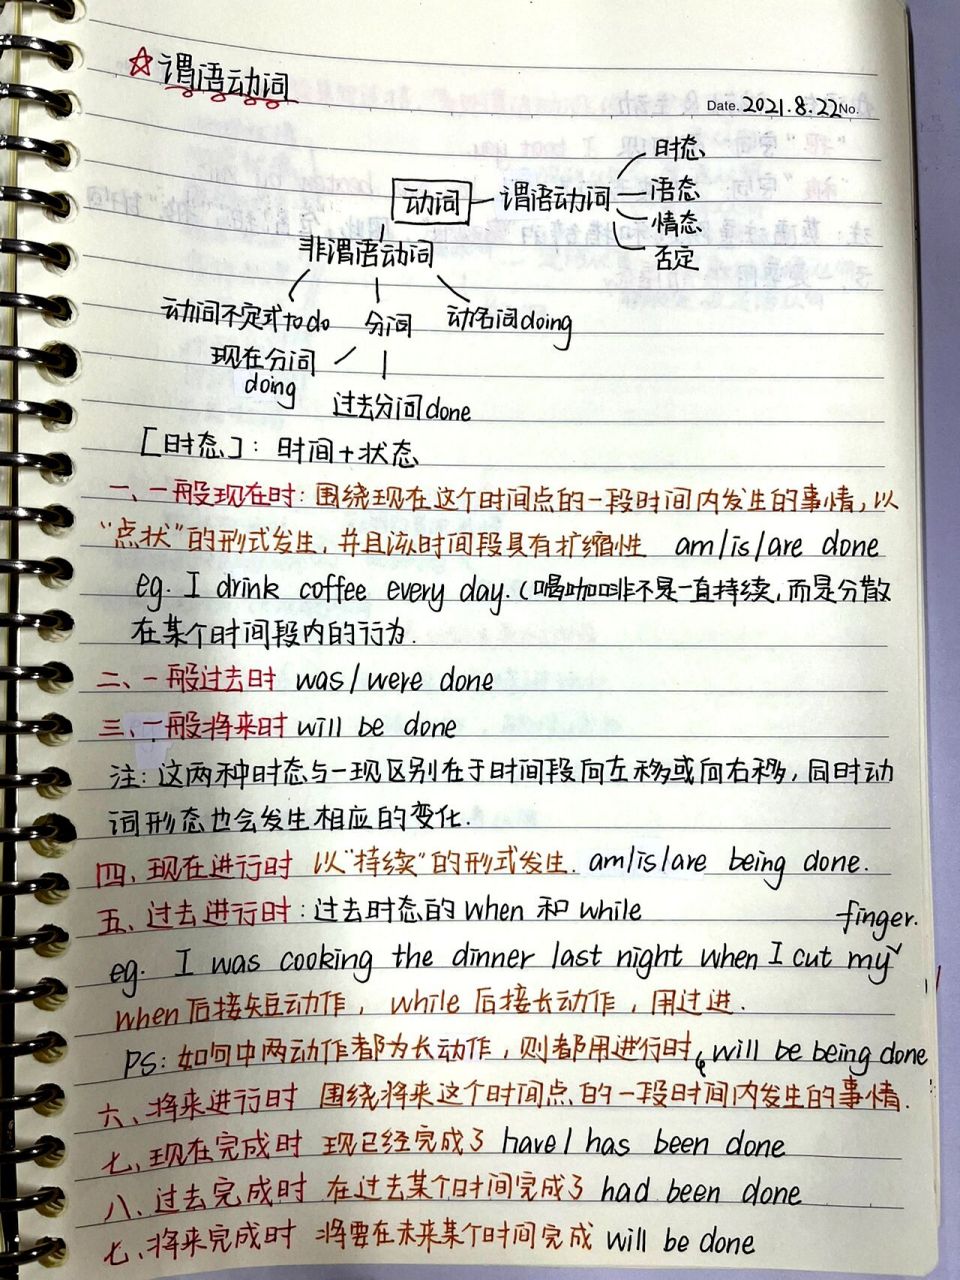 ☆谓语动词
Date. 2021.8.22 No.
时态
动词 — 谓语动词
语态
情态
否定
非谓语动词
动词不定式to do 分词 动名词doing
现在分词
doing
过去分词done
[时态]: 时间+状态
一、一般现在时: 围绕现在这个时间点的一段时间内发生的事情, 以
“点状”的形式发生, 并且该时间段具有扩缩性 am/is/are done
eg. I drink coffee every day. (喝咖啡不是一直持续, 而是分散
在某个时间段内的行为.
二、一般过去时 was/were done
三、一般将来时 will be done
注: 这两种时态与一现区别在于时间段向左移或向右移, 同时动
词形态也会发生相应的变化.
四、现在进行时 以“持续”的形式发生. am/is/are being done.
五、过去进行时: 过去时态的when 和 while
finger.
eg. I was cooking the dinner last night when I cut my
when后接短动作, while后接长动作, 用过进.
PS: 如句中两动作都为长动作, 则都用进行时 will be being done
六、将来进行时 围绕将来这个时间点的一段时间内发生的事情.
七、现在完成时 现已经完成了 have/has been done
八、过去完成时 在过去某个时间完成了 had been done
七、将来完成时 将要在未来某个时间完成 will be done